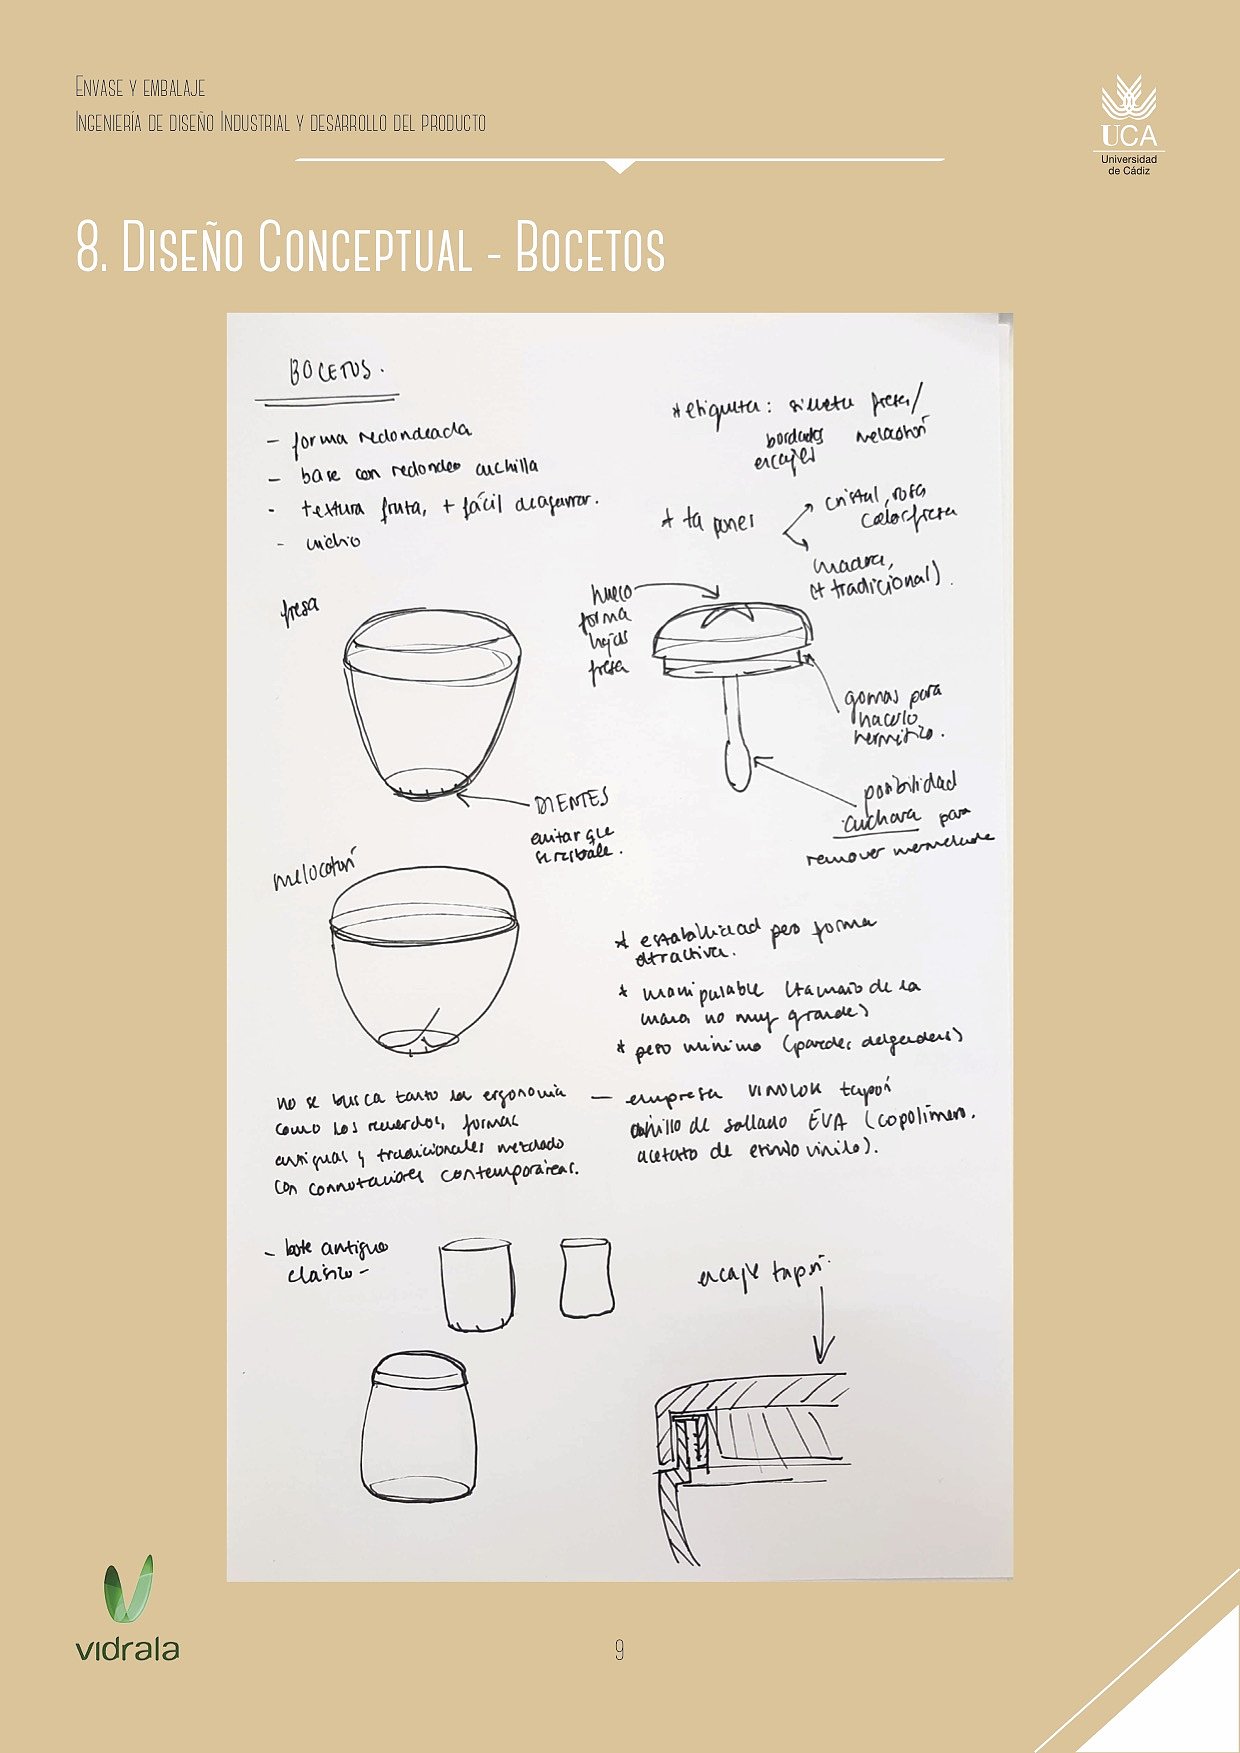 Envase y embalaje
Ingeniería de diseño Industrial y desarrollo del producto
UCA
Universidad
de Cádiz
8. Diseño Conceptual - Bocetos
BOCETOS.
- forma redondeada
- base con redondeo cuchilla
- textura fruta, + fácil de agarrar.
-
* etiqueta: silueta fresa/
bordados melocotón
encajes
* tapones
cristal, rosa
color fresa
madera,
(+ tradicional).
fresa
hueco
forma
hojas
fresa
gomas para
hacerlo
hermético.
DIENTES
evitar que
se resbale.
posibilidad
cuchara para
remover mermelada
melocotón
* estabilidad pero forma
atractiva.
* manipulable (tamaño de la
mano no muy grande)
* peso mínimo (paredes delgadas)
no se busca tanto la ergonomía
como los recuerdos, formas
antiguas y tradicionales mezclado
con connotaciones contemporáneas.
— empresa VINOLOK tapón
anillo de sellado EVA (copolímero.
acetato de etileno vinilo).
- bote antiguo
clásico -
encaje tapón.
vidrala
9